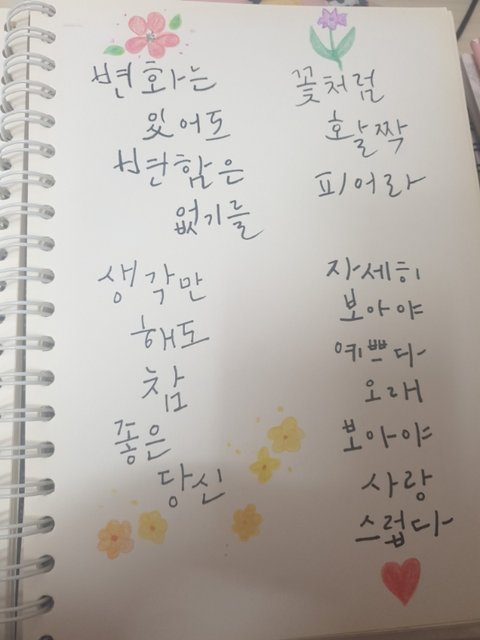 변화는
있어도
변함은
없기를
꽃처럼
활짝
피어라
생각만
해도
참
좋은
당신
자세히
보아야
예쁘다
오래
보아야
사랑
스럽다